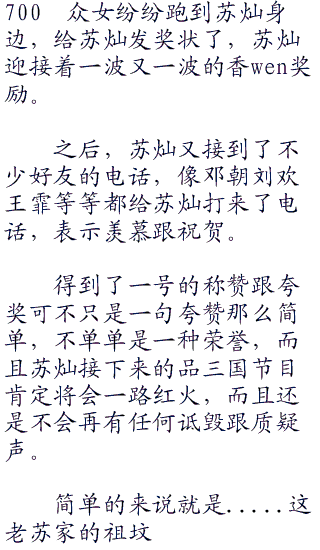 700　众女纷纷跑到苏灿身
边，给苏灿发奖状了，苏灿
迎接着一波又一波的香wen奖
励。
　　之后，苏灿又接到了不
少好友的电话，像邓朝刘欢
王霏等等都给苏灿打来了电
话，表示羡慕跟祝贺。
　　得到了一号的称赞跟夸
奖可不只是一句夸赞那么简
单，不单单是一种荣誉，而
且苏灿接下来的品三国节目
肯定将会一路红火，而且还
是不会再有任何诋毁跟质疑
声。
　　简单的来说就是.....这
老苏家的祖坟